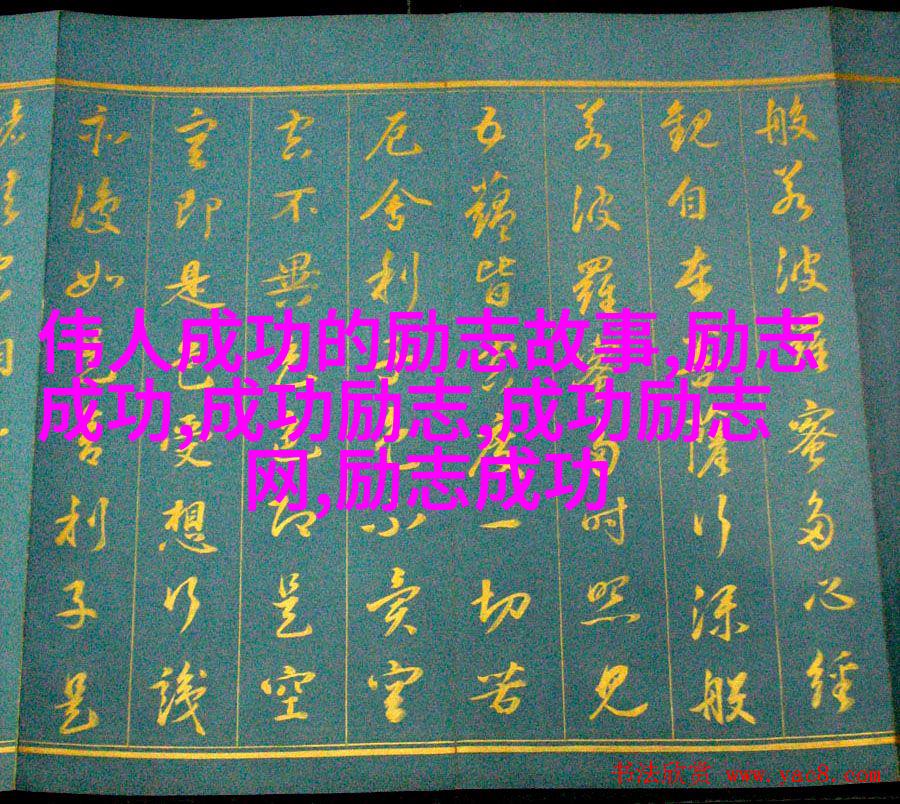 般若波羅蜜多心經
觀自在菩薩行深般
若波羅蜜多時照見
五蘊皆空度一切苦
厄舍利子色不異空
空不異色色即是空
空即是色受想行識
亦復如是舍利子是
伟人成功的励志故事,励志
成功,成功励志,成功励志
网,励志成功
书法欣赏 www.yac8.com